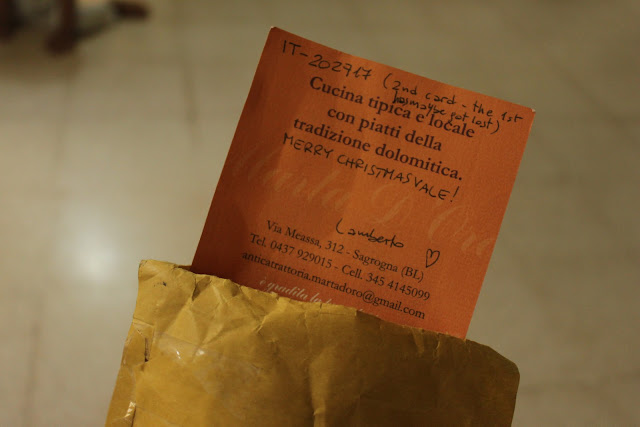 IT-202917 (2nd card - the 1st
has maybe got lost)
Cucina tipica e locale
con piatti della
tradizione dolomitica.
MERRY CHRISTMAS VALE!
Lamberto ♡
Via Meassa, 312 - Sagrogna (BL)
Tel. 0437 929015 - Cell. 345 4145099
anticatrattoria.martadoro@gmail.com
è gradita la